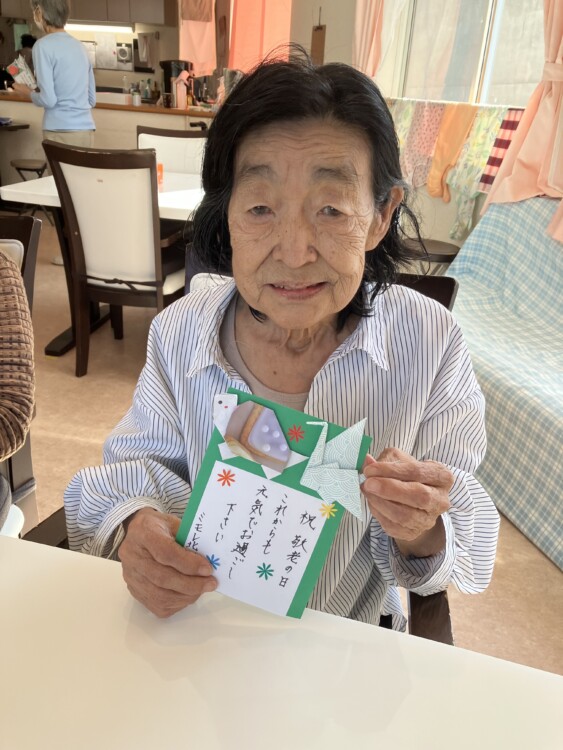 祝 敬老の日
これからも
元気でお過ごし
下さい
ミモレ